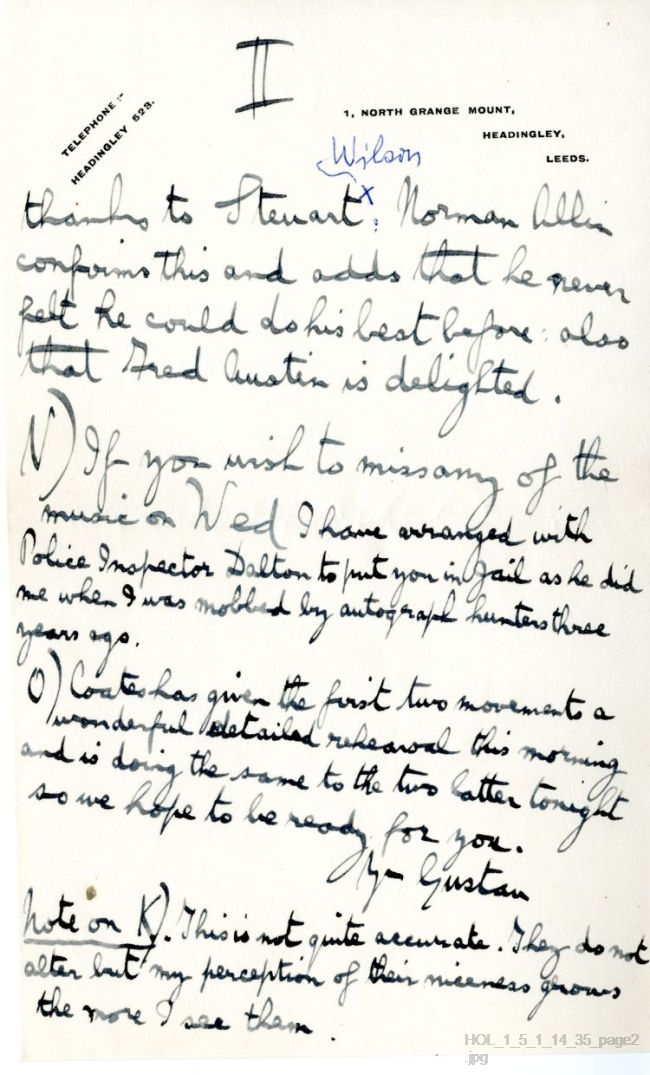 II
TELEPHONE:-
HEADINGLEY 523.
1, NORTH GRANGE MOUNT,
HEADINGLEY,
LEEDS.
Wilson
x
thanks to Steuart. Norman Allin
confirms this and adds that he never
felt he could do his best before: also
that Fred Austin is delighted.
N) If you wish to miss any of the
music on Wed I have arranged with
Police Inspector Dalton to put you in Jail as he did
me when I was mobbed by autograph hunters three
years ago.
O) Coates has given the first two movements a
wonderful detailed rehearsal this morning
and is doing the same to the two latter tonight
so we hope to be ready for you.
Yr Gustav
Note on K). This is not quite accurate. They do not
alter but my perception of their niceness grows
the more I see them.
HOL_1_5_1_14_35_page2
.jpg